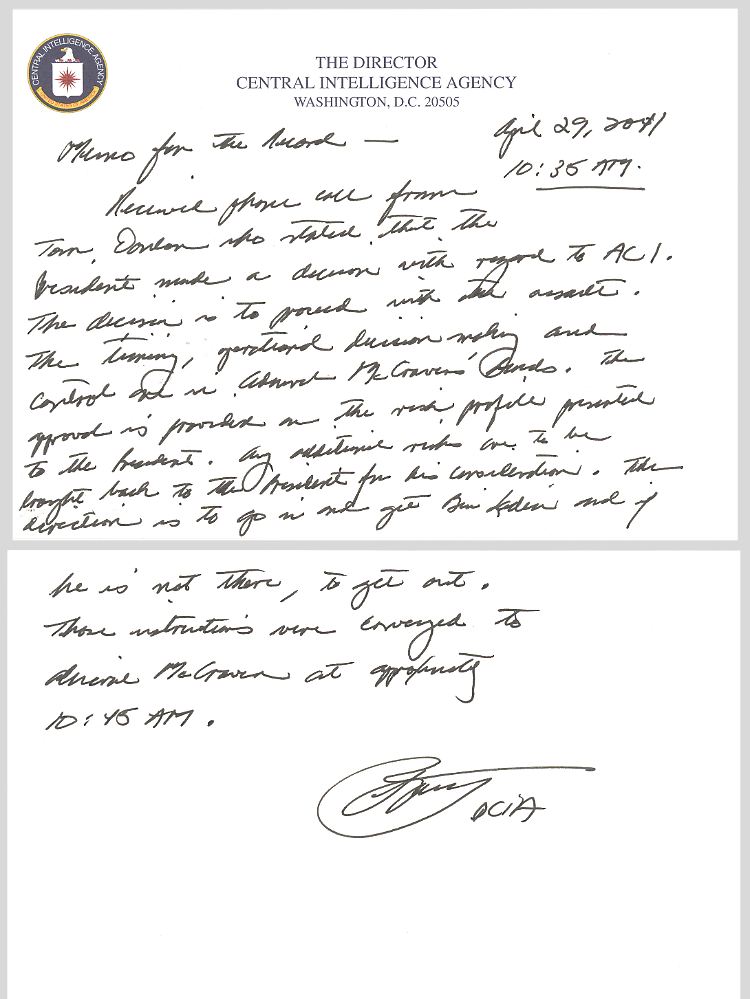 CENTRAL INTELLIGENCE AGENCY
UNITED STATES OF AMERICA
THE DIRECTOR
CENTRAL INTELLIGENCE AGENCY
WASHINGTON, D.C. 20505
Memo for the Record — April 29, 2011
10:35 AM.
Received phone call from
Tom Donilon who stated that the
President made a decision with regard to AC1.
The decision is to proceed with the assault.
The timing, operational decision making and
control are in Admiral McCraven's hands. The
approval is provided on the risk profile presented
to the President. Any additional risks are to be
brought back to the President for his consideration. The
direction is to go in and get Bin Laden and if
he is not there, to get out.
Those instructions were conveyed to
Admiral McCraven at approximately
10:45 AM.
DCIA